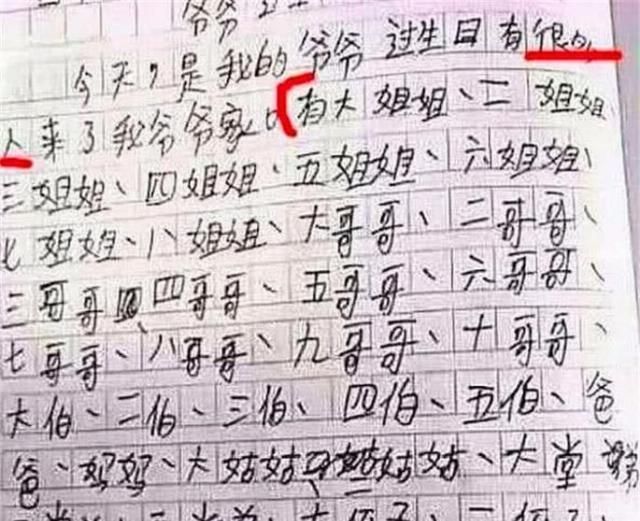 爷爷
今天,是我的爷爷过生日有很多
人来了我爷爷家,有大姐姐、二姐姐
三姐姐、四姐姐、五姐姐、六姐姐、
七姐姐、八姐姐、大哥哥、二哥哥、
三哥哥四哥哥、五哥哥、六哥哥、
七哥哥、八哥哥、九哥哥、十哥哥、
大伯、二伯、三伯、四伯、五伯、爸
爸、妈妈、大姑姑、二姑姑、大堂